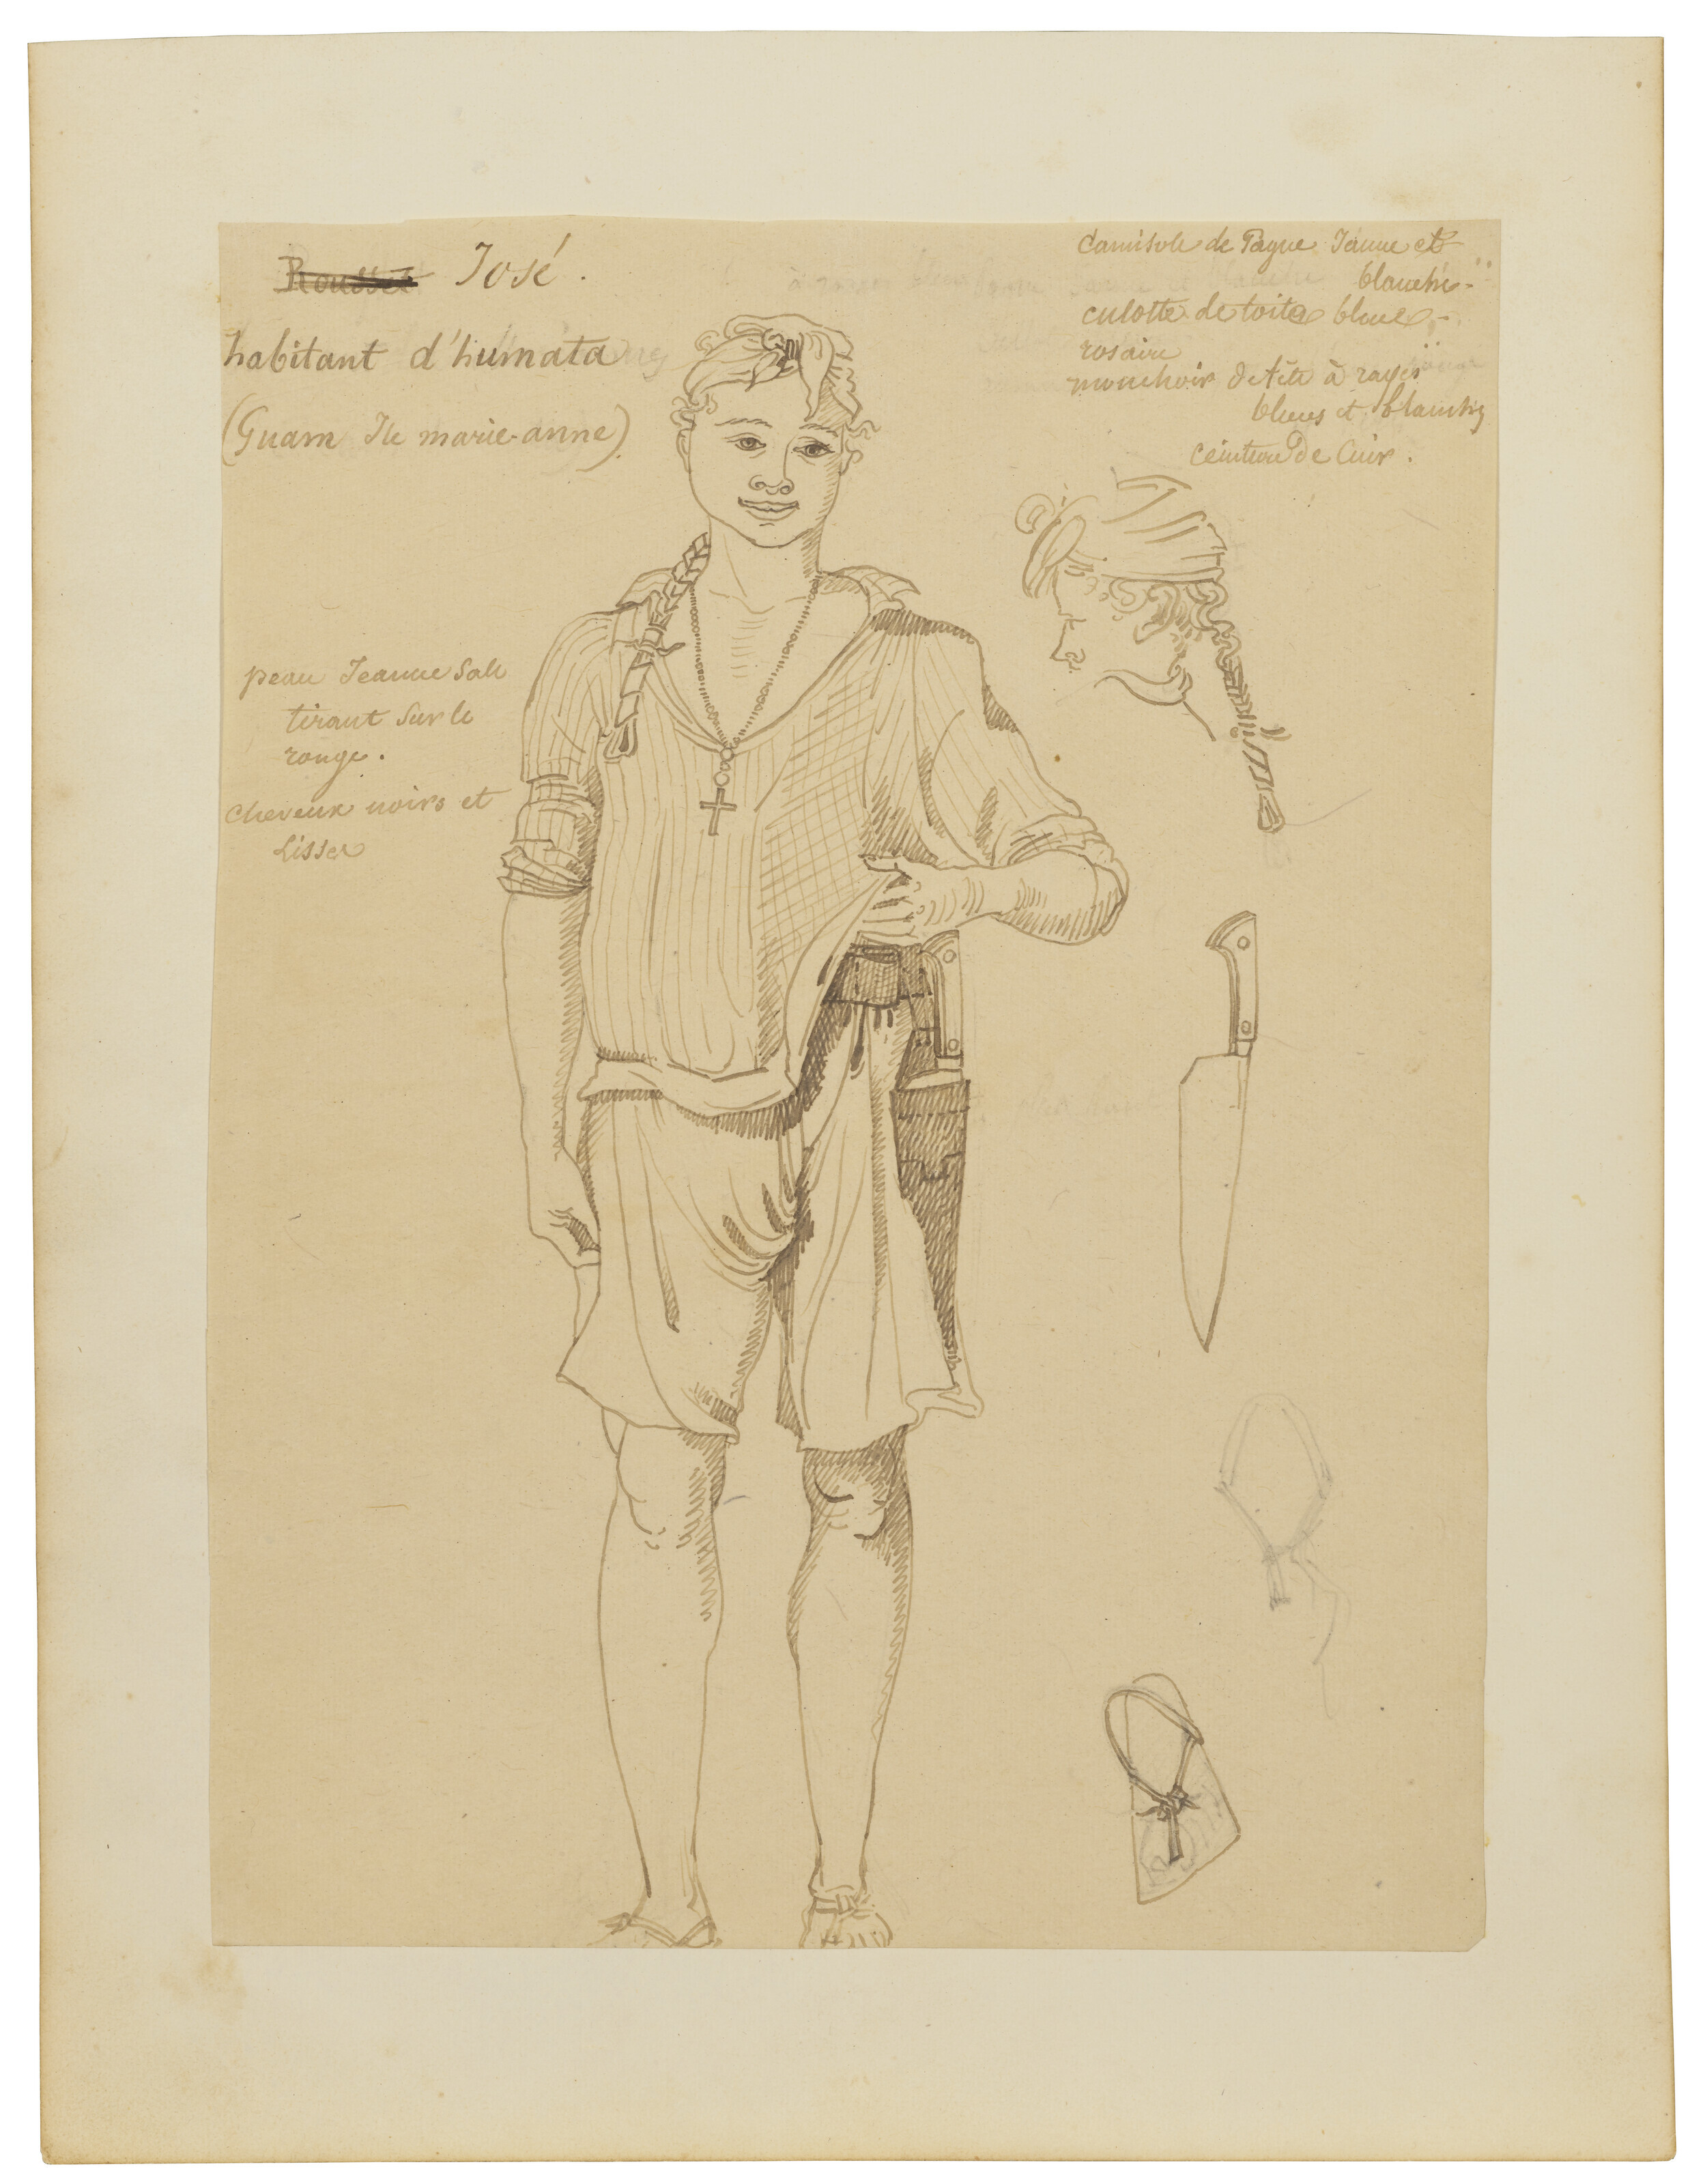 José.
habitant d'humata
(Guam Ile marie-anne).
Camisole de Pagne Jaune et
blanche-
culotte de toile bleue-
rosaire
mouchoir de tête à rayes
bleues et blanches
ceinture de Cuir.
peau Jeaune Sale
tirant Sur le
rouge.
cheveux noirs et
Lisses